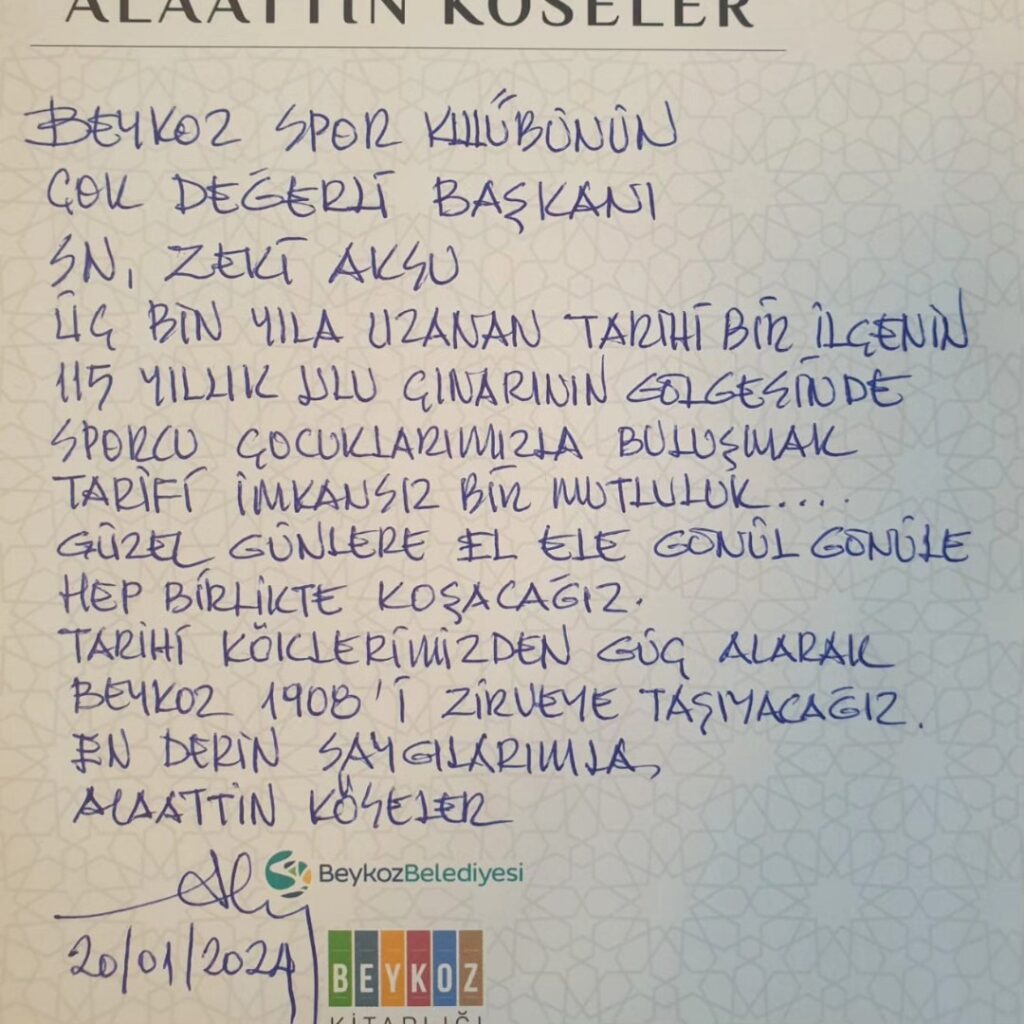 ALAATTİN KÖSELER
BEYKOZ SPOR KULÜBÜNÜN
ÇOK DEĞERLİ BAŞKANI
SN, ZEKİ AKSU
ÜÇ BİN YILA UZANAN TARİHİ BİR İLÇENİN
115 YILLIK ULU ÇINARININ GÖLGESİNDE
SPORCU ÇOCUKLARIMIZLA BULUŞMAK
TARİFİ İMKANSIZ BİR MUTLULUK....
GÜZEL GÜNLERE EL ELE GÖNÜL GÖNÜLE
HEP BİRLİKTE KOŞACAĞIZ.
TARİHİ KÖKLERİMİZDEN GÜÇ ALARAK
BEYKOZ 1908'İ ZİRVEYE TAŞIYACAĞIZ.
EN DERİN SAYGILARIMLA,
ALAATTİN KÖSELER
BeykozBelediyesi
20/01/2024
BEYKOZ
KİTAPLIĞI